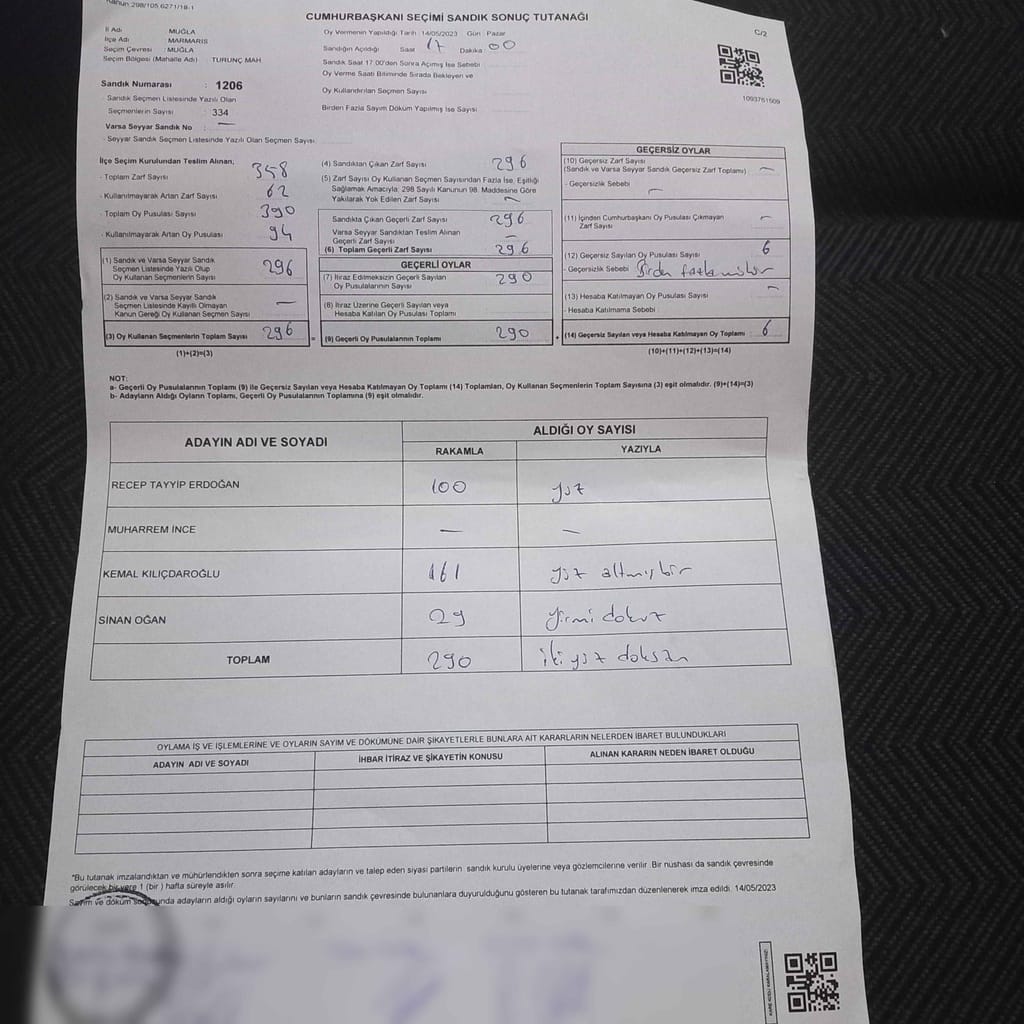 Kanun 298/105.6271/18-1
CUMHURBAŞKANI SEÇİMİ SANDIK SONUÇ TUTANAĞI
C/2
İl Adı : MUĞLA
İlçe Adı : MARMARİS
Seçim Çevresi : MUĞLA
Seçim Bölgesi (Mahalle Adı) : TURUNÇ MAH
Sandık Numarası : 1206
Sandık Seçmen Listesinde Yazılı Olan
Seçmenlerin Sayısı : 334
Varsa Seyyar Sandık No : —
Seyyar Sandık Seçmen Listesinde Yazılı Olan Seçmen Sayısı
Oy Vermenin Yapıldığı Tarih : 14/05/2023 Gün : Pazar
Sandığın Açıldığı Saat 17 Dakika : 00
Sandık Saat 17:00'den Sonra Açılmış İse Sebebi
Oy Verme Saati Bitiminde Sırada Bekleyen ve
Oy Kullandırılan Seçmen Sayısı
Birden Fazla Sayım Döküm Yapılmış İse Sayısı
1093761509
İlçe Seçim Kurulundan Teslim Alınan;
- Toplam Zarf Sayısı 358
- Kullanılmayarak Artan Zarf Sayısı 62
- Toplam Oy Pusulası Sayısı 390
- Kullanılmayarak Artan Oy Pusulası 94
(1) Sandık ve Varsa Seyyar Sandık
Seçmen Listesinde Yazılı Olup
Oy Kullanan Seçmenlerin Sayısı 296
(2) Sandık ve Varsa Seyyar Sandık
Seçmen Listesinde Kayıtlı Olmayan
Kanun Gereği Oy Kullanan Seçmen Sayısı —
(3) Oy Kullanan Seçmenlerin Toplam Sayısı 296
(1)+(2)=(3)
(4) Sandıktan Çıkan Zarf Sayısı 296
(5) Zarf Sayısı Oy Kullanan Seçmen Sayısından Fazla İse, Eşitliği
Sağlamak Amacıyla; 298 Sayılı Kanunun 98. Maddesine Göre
Yakılarak Yok Edilen Zarf Sayısı —
Sandıkta Çıkan Geçerli Zarf Sayısı 296
Varsa Seyyar Sandıktan Teslim Alınan
Geçerli Zarf Sayısı —
(6) Toplam Geçerli Zarf Sayısı 296
GEÇERLİ OYLAR
(7) İtiraz Edilmeksizin Geçerli Sayılan
Oy Pusulasının Sayısı 290
(8) İtiraz Üzerine Geçerli Sayılan veya
Hesaba Katılan Oy Pusulası Toplamı
(9) Geçerli Oy Pusulalarının Toplamı 290
GEÇERSİZ OYLAR
(10) Geçersiz Zarf Sayısı
(Sandık ve Varsa Seyyar Sandık Geçersiz Zarf Toplamı) —
- Geçersizlik Sebebi —
(11) İçinden Cumhurbaşkanı Oy Pusulası Çıkmayan
Zarf Sayısı —
(12) Geçersiz Sayılan Oy Pusulası Sayısı 6
- Geçersizlik Sebebi Birden fazla mühür
(13) Hesaba Katılmayan Oy Pusulası Sayısı —
- Hesaba Katılmama Sebebi
(14) Geçersiz Sayılan veya Hesaba Katılmayan Oy Toplamı : 6
(10)+(11)+(12)+(13)=(14)
NOT:
a- Geçerli Oy Pusulalarının Toplamı (9) ile Geçersiz Sayılan veya Hesaba Katılmayan Oy Toplamı (14) Toplamları, Oy Kullanan Seçmenlerin Toplam Sayısına (3) eşit olmalıdır. (9)+(14)=(3)
b- Adayların Aldığı Oyların Toplamı, Geçerli Oy Pusulalarının Toplamına (9) eşit olmalıdır.
ADAYIN ADI VE SOYADI
ALDIĞI OY SAYISI
RAKAMLA YAZIYLA
RECEP TAYYİP ERDOĞAN 100 yüz
MUHARREM İNCE — —
KEMAL KILIÇDAROĞLU 161 yüz altmış bir
SİNAN OĞAN 29 yirmi dokuz
TOPLAM 290 iki yüz doksan
OYLAMA İŞ VE İŞLEMLERİNE VE OYLARIN SAYIM VE DÖKÜMÜNE DAİR ŞİKAYETLERLE BUNLARA AİT KARARLARIN NELERDEN İBARET BULUNDUKLARI
ADAYIN ADI VE SOYADI İHBAR İTİRAZ VE ŞİKAYETİN KONUSU ALINAN KARARIN NEDEN İBARET OLDUĞU
"Bu tutanak imzalandıktan ve mühürlendikten sonra seçime katılan adayların ve talep eden siyasi partilerin sandık kurulu üyelerine veya gözlemcilerine verilir. Bir nüshası da sandık çevresinde
görülecek bir yere 1 (bir) hafta süreyle asılır.
Sayım ve döküm sonucunda adayların aldığı oyların sayılarını ve bunların sandık çevresinde bulunanlara duyurulduğunu gösteren bu tutanak tarafımızdan düzenlenerek imza edildi. 14/05/2023